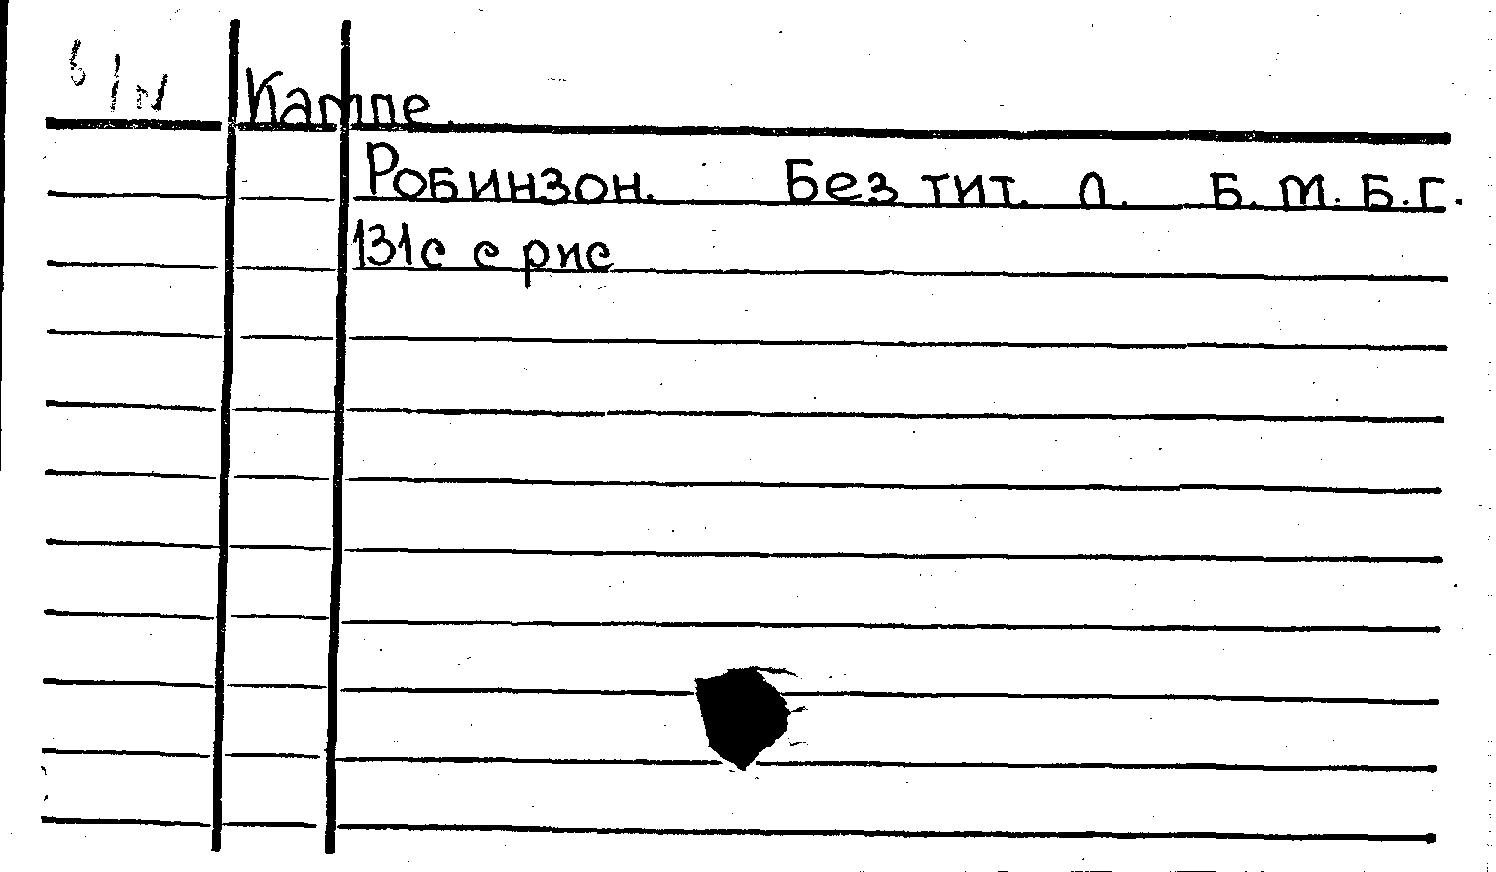 б/N
Кампе.
Робинзон. Без тит. л. Б.м. Б.г.
131с с рис